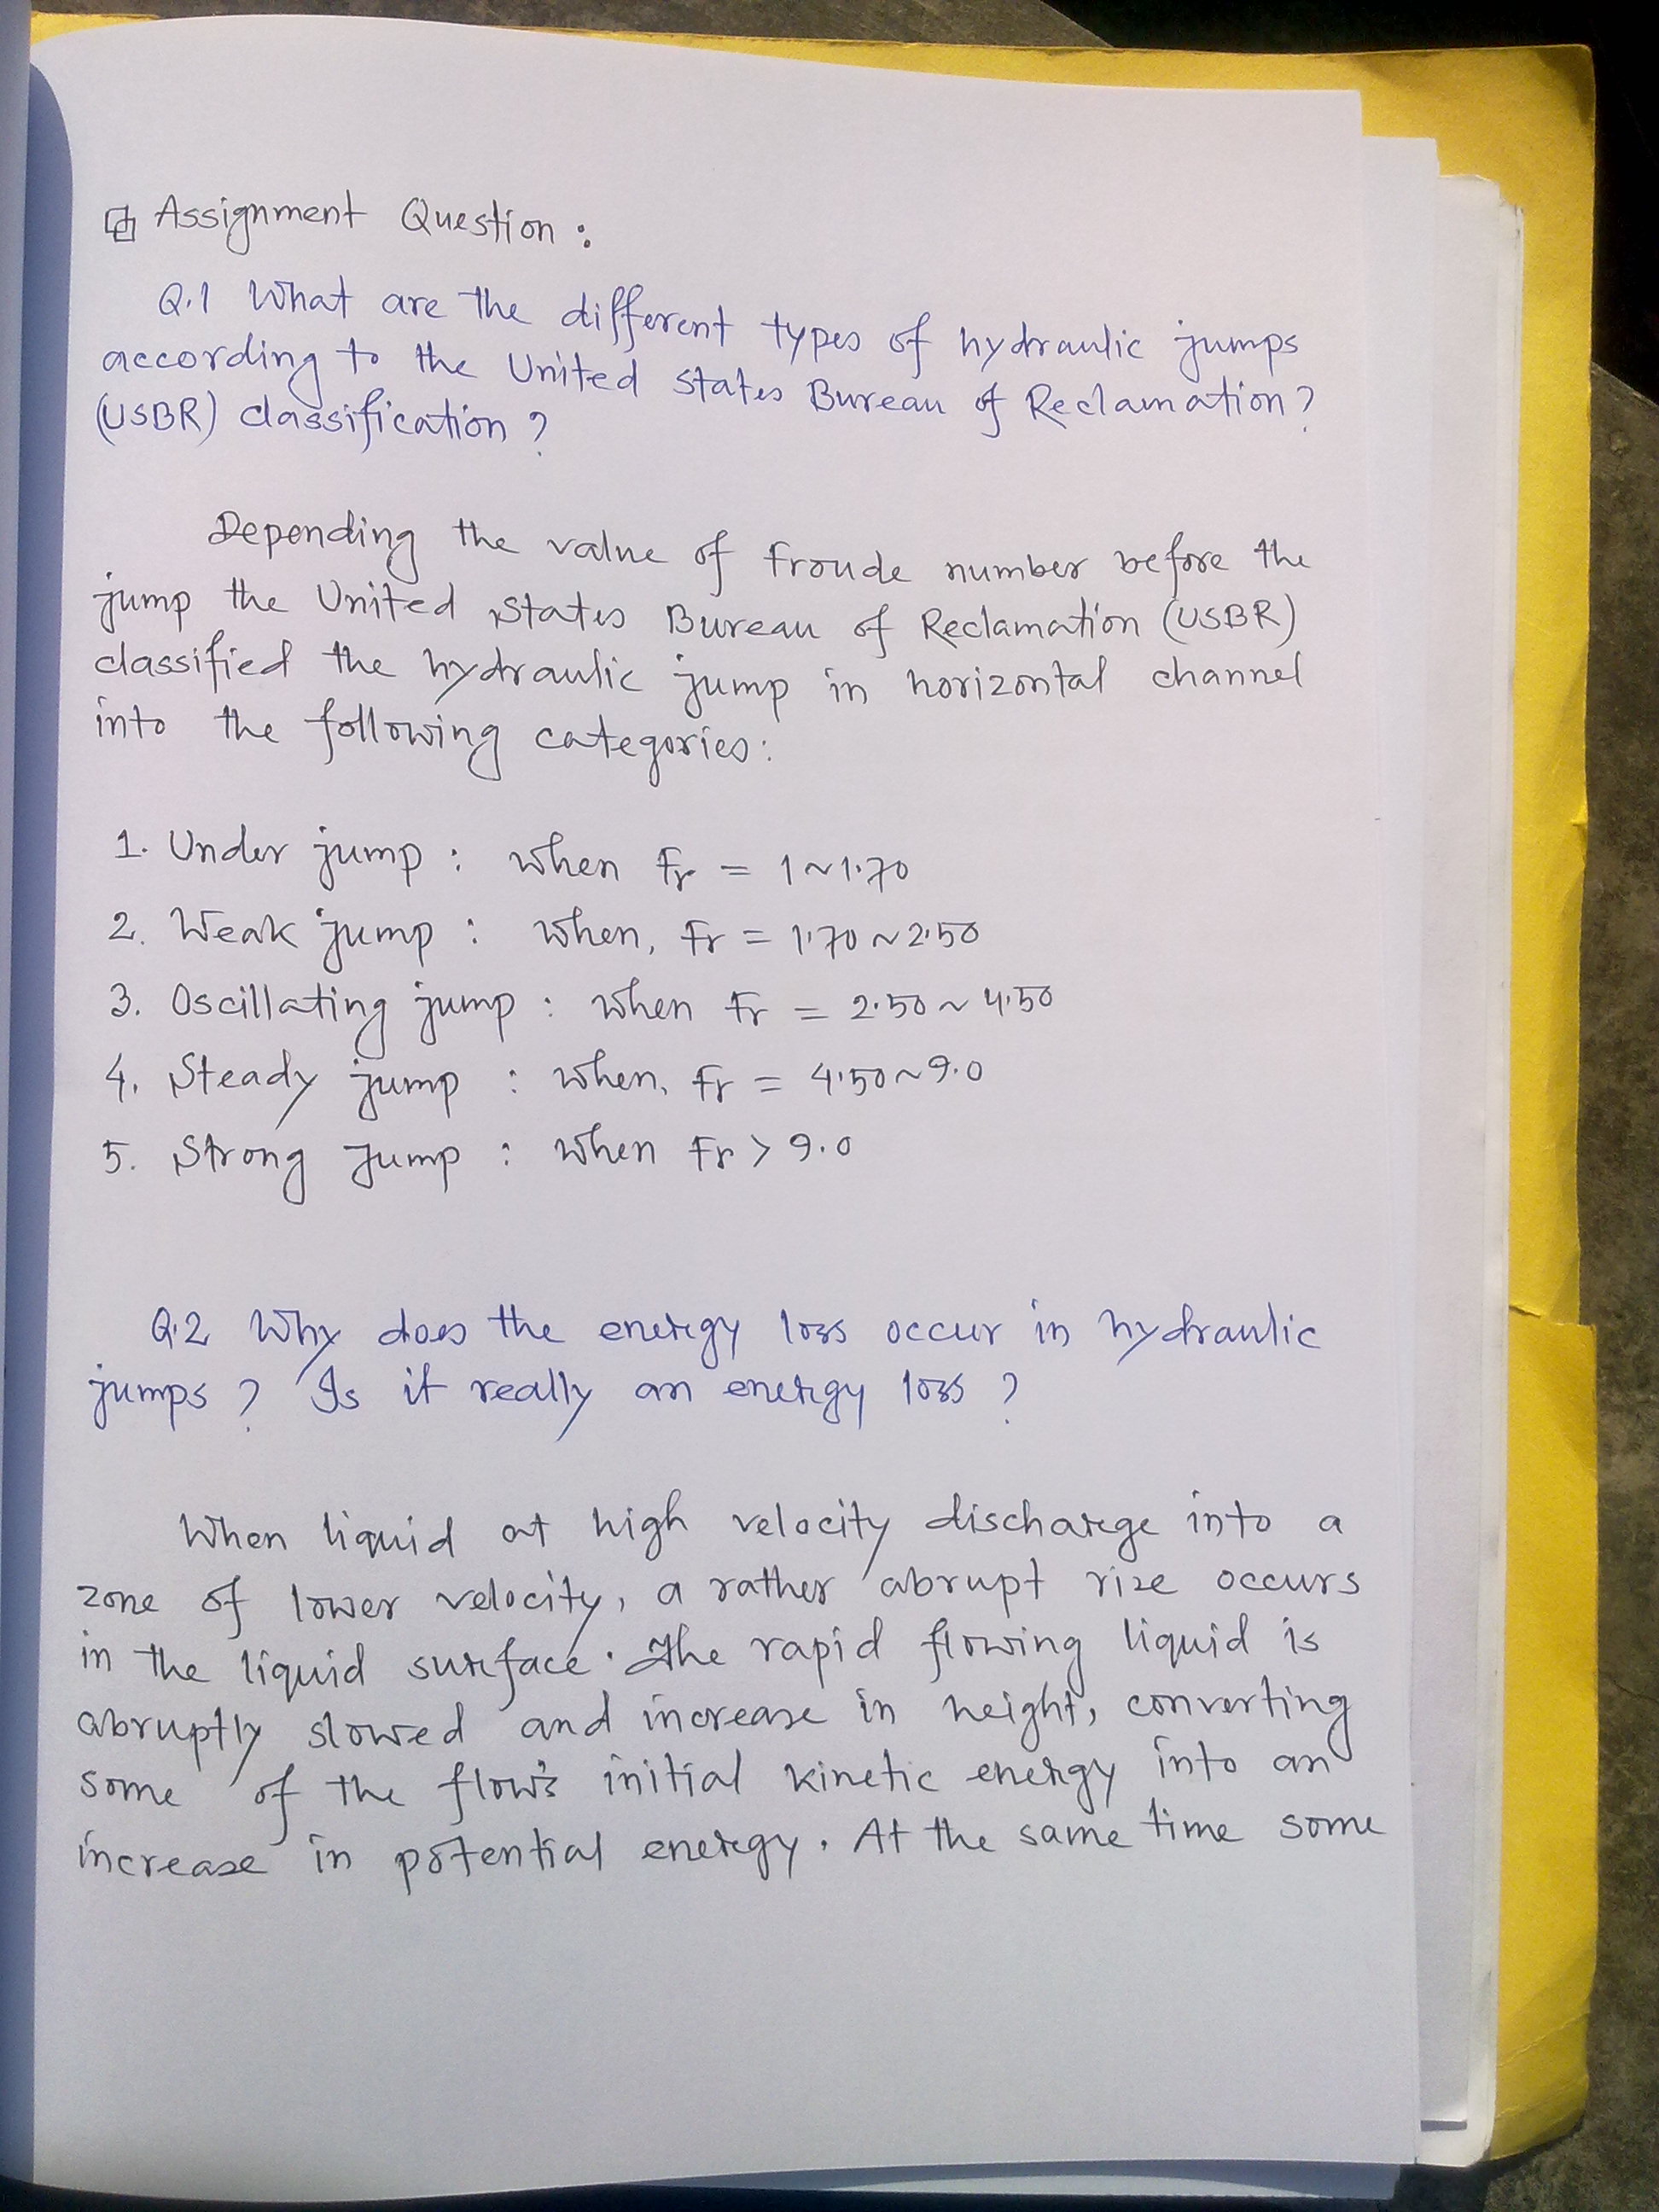 Assignment Question :
Q.1 What are the different types of hydraulic jumps
according to the United States Bureau of Reclamation?
(USBR) classification ?
Depending the value of Froude number before the
jump the United States Bureau of Reclamation (USBR)
classified the hydraulic jump in horizontal channel
into the following categories:
1. Under jump : when Fr = 1~1.70
2. Weak jump : when, Fr = 1.70~2.50
3. Oscillating jump : when Fr = 2.50~4.50
4. Steady jump : when, Fr = 4.50~9.0
5. Strong Jump : when Fr > 9.0
Q.2 Why does the energy loss occur in hydraulic
jumps ? Is it really an energy loss ?
When liquid at high velocity discharge into a
zone of lower velocity, a rather abrupt rize occurs
in the liquid surface. The rapid flowing liquid is
abruptly slowed and increase in height, converting
some of the flow's initial kinetic energy into an
increase in potential energy. At the same time some